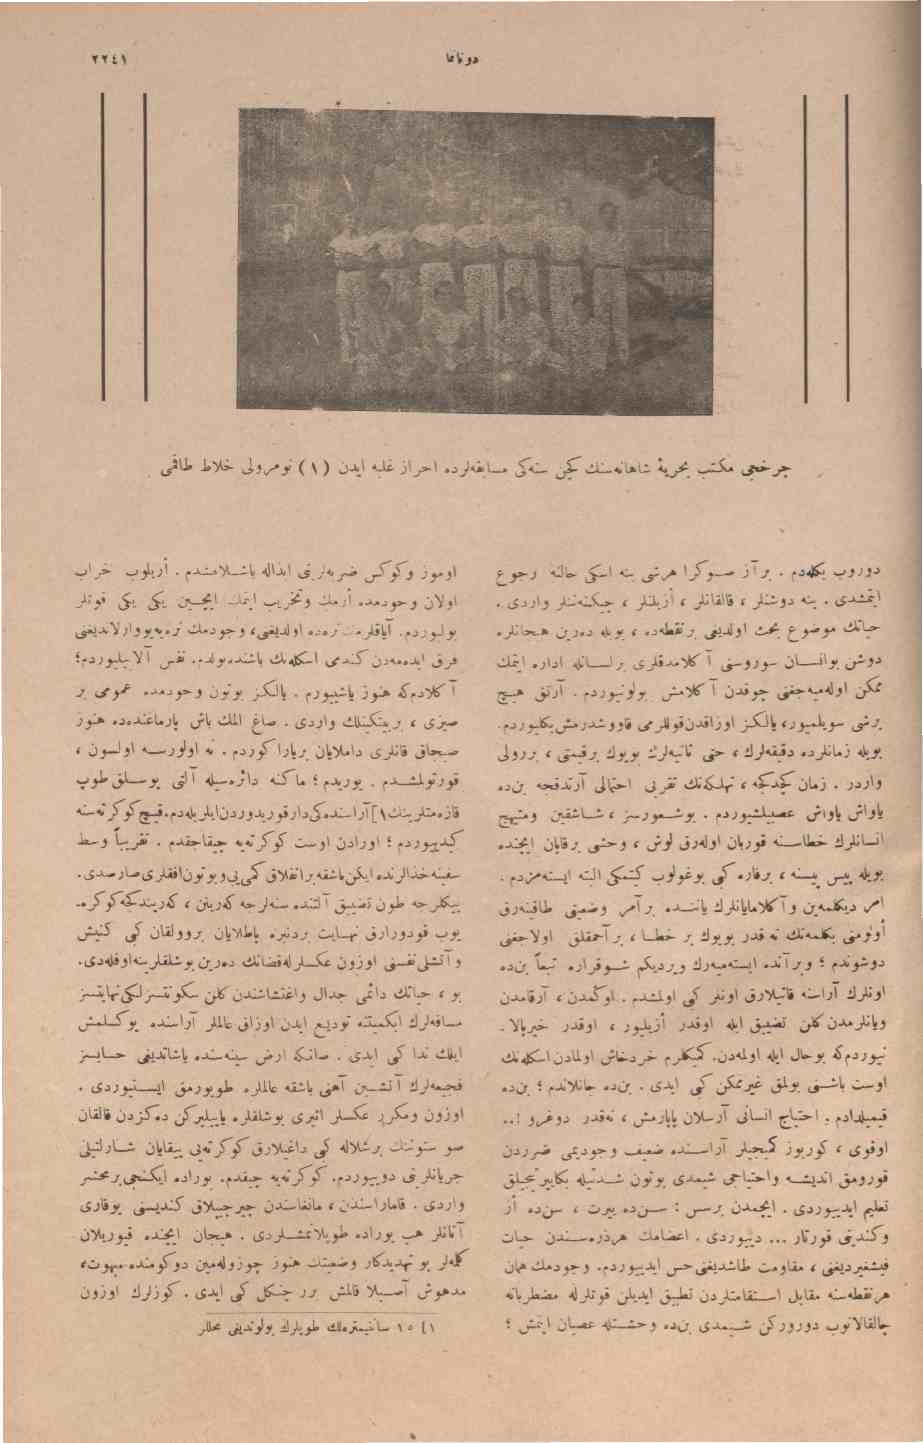 دونانما
٢٢٤١
چرخجی مكتب بحریهٔ شاهانه‌سنك كچن سنه‌كی مسابقه‌لرده احراز غلبه ایدن (١) نومرولی خلاط طاقمی
دوروب بكله‌دم . بر آز صوكرا هرشی ینه اسكی حالنه رجوع
ایتمشدی . ینه دوشنلر ، قالقانلر ، أزیلنلر ، چیكنه‌ننلر واردی .
حیاتك موضوع بحث اولدیغی بر نقطه‌ده ، بویله ده‌رین هیجانلره
دوشن بو انسان سوروسنی آكلامدقلری بر لسانله اداره ایتمك
ممكن اوله‌میه‌جغنی چوقدن آكلامش بولونیوردم . آرتق هیچ
برشی سویلمیور، یالكز اوزاقدن قوللرمی قاووشدرمش بكلیوردم.
بویله زمانلرده دقیقه‌لرك ، حتی ثانیه‌لرك بویوك برقیمتی ، بررولی
واردر . زمان كچدكجه ، تهلكه‌نك تقربی احتمالی آرتدقجه بن‌ده
یاواش یاواش عصبیلشیوردم . بو شعورسز ، شاشقین ومتهیج
انسانلرك خطاسنه قوربان اوله‌رق لوش ، وحشی برقاپان ایچنده
بویله پیس پیسنه ، برفاره كبی بوغولوب كیتمكی البته ایسته‌مزدم .
امر دیكله‌مین وآكلامایانلرك یاننده برآمر وضعیتی طاقینه‌رق
أولومنی بكله‌مه‌نك نه قدر بویوك بر خطا ، بر آحمقلق اولاجغنی
دوشوندم ؛ وبر آنده ایسته‌میه‌رك ویردیكم شو قراره تبعاً بن‌ده
اونلرك آراسنه قاتیلارق اونلر كبی اولمشدم . اوكمدن ، آرقامدن
ویانلرمدن كلن تضییق ایله اوقدر أزیلیور ، اوقدر خیرپالا .
نیوردم‌كه بو حال ایله اولمه‌دن، كمیكلرم خردخاش اولمادن اسكله‌نك
اوست باشنی بولمق غیرممكن كبی ایدی . بن‌ده جانلاندم ؛ بن‌ده
قیمیلدادم . احتیاج انسانی آرسلان یاپارمش ، نه‌قدر دوغرو !..
اوقوی ، كوربوز كمیجیلر آراسنده ضعیف وجودیمی ضرردن
قورومق اندیشه واحتیاجی شیمدی بوتون شدتیله بكا
تعلیم ایدییوردی . ایچمدن برسس : سن‌ده ییرت ، سن‌ده أز
وكندیكی قورتار ... دییوردی . اعضامك هرذره‌سندن حیات
فیشغیردیغنی ، مقاومت طاشدیغنی حس ایدییوردم. وجودمك همان
هرنقطه‌سنه مقابل استقامتلردن تطبیق ایدیلن قوتلرله مضطربانه
چالقالانوب دورورکن شیمدی بن‌ده وحشتله عصیان ایتمش ؛
اوموز وكوكس ضربه‌لرینی ابذاله باشلامشدم . أزیلوب خراب
اولان وجودمده أزمك وتخریب ایتمك ایچین یكی یكی قوتلر
بولیوردم. آیاقلرمك نره‌ده اولدیغنی، وجودمك نره‌یه یووارلاندیغنی
فرق ایده‌مه‌دن كندمی اسكله‌نك باشنده بولدم. نفس آلابیلیوردم؛
آكلادم‌كه هنوز یاشییورم . یالكز بوتون وجودمده عمومی بر
صیزی ، بر بیتكینلك واردی . صاغ المك باش پارماغنده‌ده هنوز
صیجاق قانلری داملایان بر یارا كوردم . نه اولورسه اولسون ،
قورتولمشدم . یوریدم ؛ ماكنه دائره‌سیله آلتی پوسلق طوپ
قازه‌متلرینك ١] آراسنده‌كی دار قوریدوردن ایلریله‌دم. قیچ كوكرته‌سنه
كیدییوردم ؛ اورادن اوست كوكرته‌یه چیقاجقدم . تقریباً وسط
سفینه حذالرنده ایكن باشقه بر انفلاق كمی‌یی وبوتون افقلری صارصدی.
بیكلرجه طون تضییق آلتنده سنه‌لرجه كه‌ریلن ، كه‌ریلدكجه كوكره.
یوب قودورارق نهایت بردنبره پاطلایان بر وولقان كبی كنیش
وآتشلی نفسنی اوزون عكسلرله فضانك ده‌رین بوشلقلرینه اوفله‌دی.
بو ، حیاتك دائمی جدال واغتشاشندن كلن سكونتسزلكی نهایتسز
مسافه‌لرك ابكمیتنه تودیع ایدن اوزاق عالملر آراسنده یوكسلمش
ایلك ندا كبی ایدی . صانكه ارض سینه‌سنده یاشاتدیغی حسابسز
فجیعه‌لرك آتشین آهنی باشقه عالملره طویورمق ایستیوردی .
اوزون ومكرر عكسلر اثیری بوشلقلره یاییلیركن ده‌كزدن قالقان
صو ستوننك برشلاله كبی داغیلارق كوكرته‌یی ییقایان شارلتیلی
جریانلرینی دویییوردم. كوكرته‌یه چیقدم. بوراده ایكنجی برمحشر
واردی . قامارا سندن ، مانغاسندن چیرچیپلاق كندیسنی یوقاری
آتانلر هپ بوراده طوپلانمشلردی . هیجان ایچنده قیوریلان
كله‌لر بو تهدیدكار وضعیتك هنوز چوزوله‌مین دوكومنده مبهوت،
مدهوش آصیلا قالمش برر چنكل كبی ایدی . كوزلرك اوزون
١] ١٥ سانتیمتره‌لك طوپلرك بولوندیغی محللر